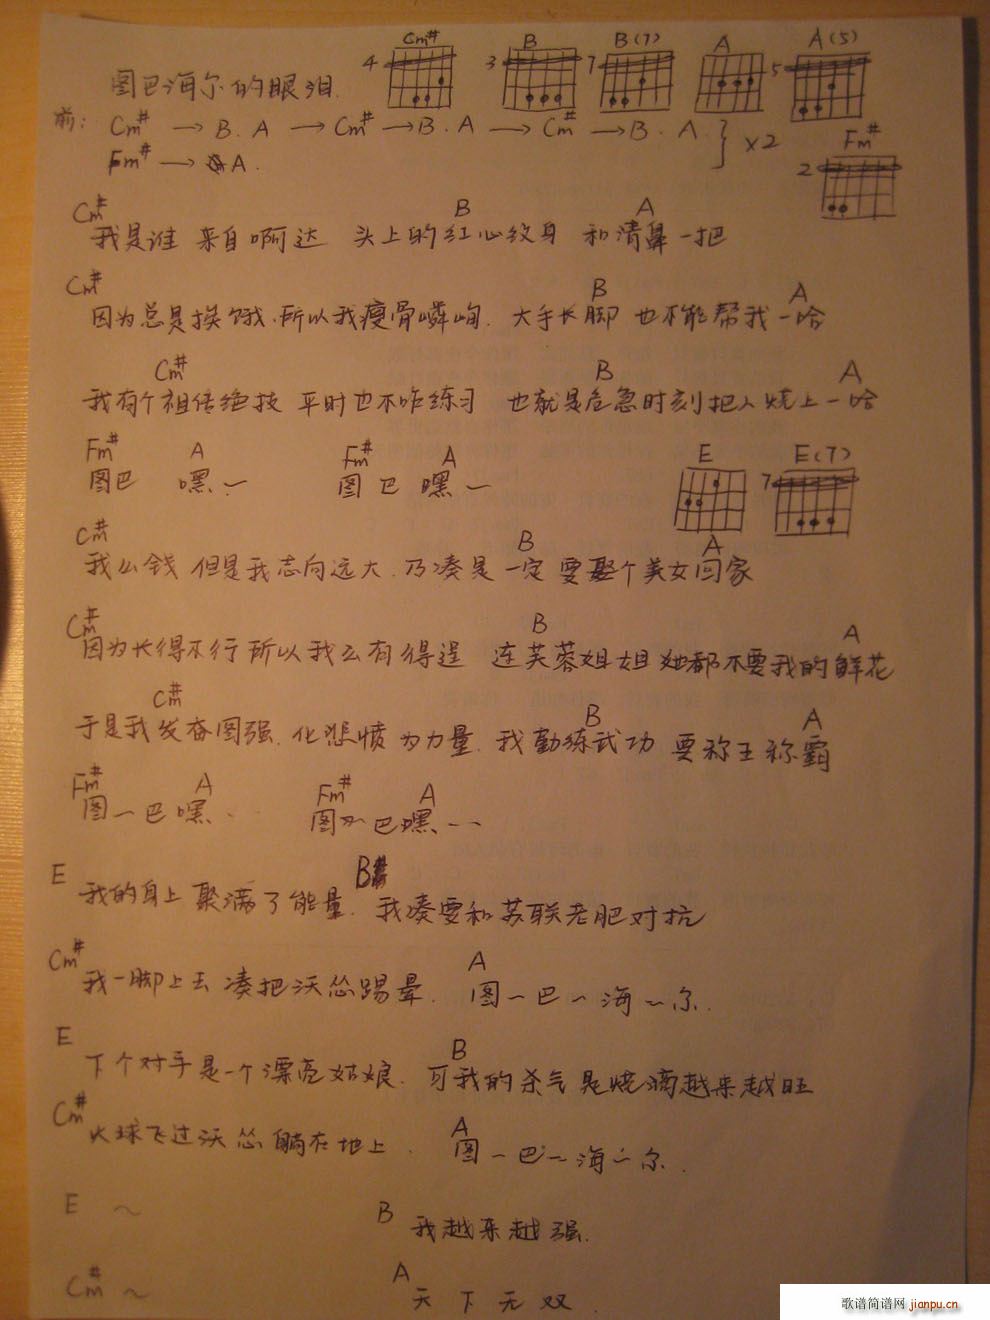 Cm# B B(7) A A(5)
4 3 7 5
图巴海尔的眼泪.
前: Cm# → B. A → Cm# → B. A → Cm# → B. A. } ×2
Fm# → A.
Fm#
2
Cm# B A
我是谁 来自啊达 头上的红心纹身 和清鼻一把
Cm# B A
因为总是挨饿.所以我瘦骨嶙峋. 大手长脚 也不能帮我一哈
Cm# B A
我有个祖传绝技 平时也不咋练习 也就是危急时刻把人烧上一哈
Fm# A Fm# A
图巴 嘿~ 图巴 嘿~
E E(7)
7
Cm# B A
我么钱 但是我志向远大. 乃凑是一定要娶个美女回家
Cm# B A
因为长得不行 所以我么有得逞 连芙蓉姐姐她都不要我的鲜花
Cm# B A
于是我发奋图强. 化悲愤为力量. 我勤练武功 要称王称霸
Fm# A Fm# A
图~巴嘿. 图 巴嘿~~
E B#
我的身上聚满了能量. 我凑要和苏联老肥对抗
Cm# A
我一脚上去 凑把沃怂踢晕. 图~巴~海~尔.
E B
下个对手是一个漂亮姑娘. 可我的杀气是烧滴越来越旺
Cm# A
火球飞过沃怂躺在地上. 图~巴~海~尔.
E ~ B 我越来越强.
Cm# ~ A
天下无双.
歌谱简谱网 jianpu.cn